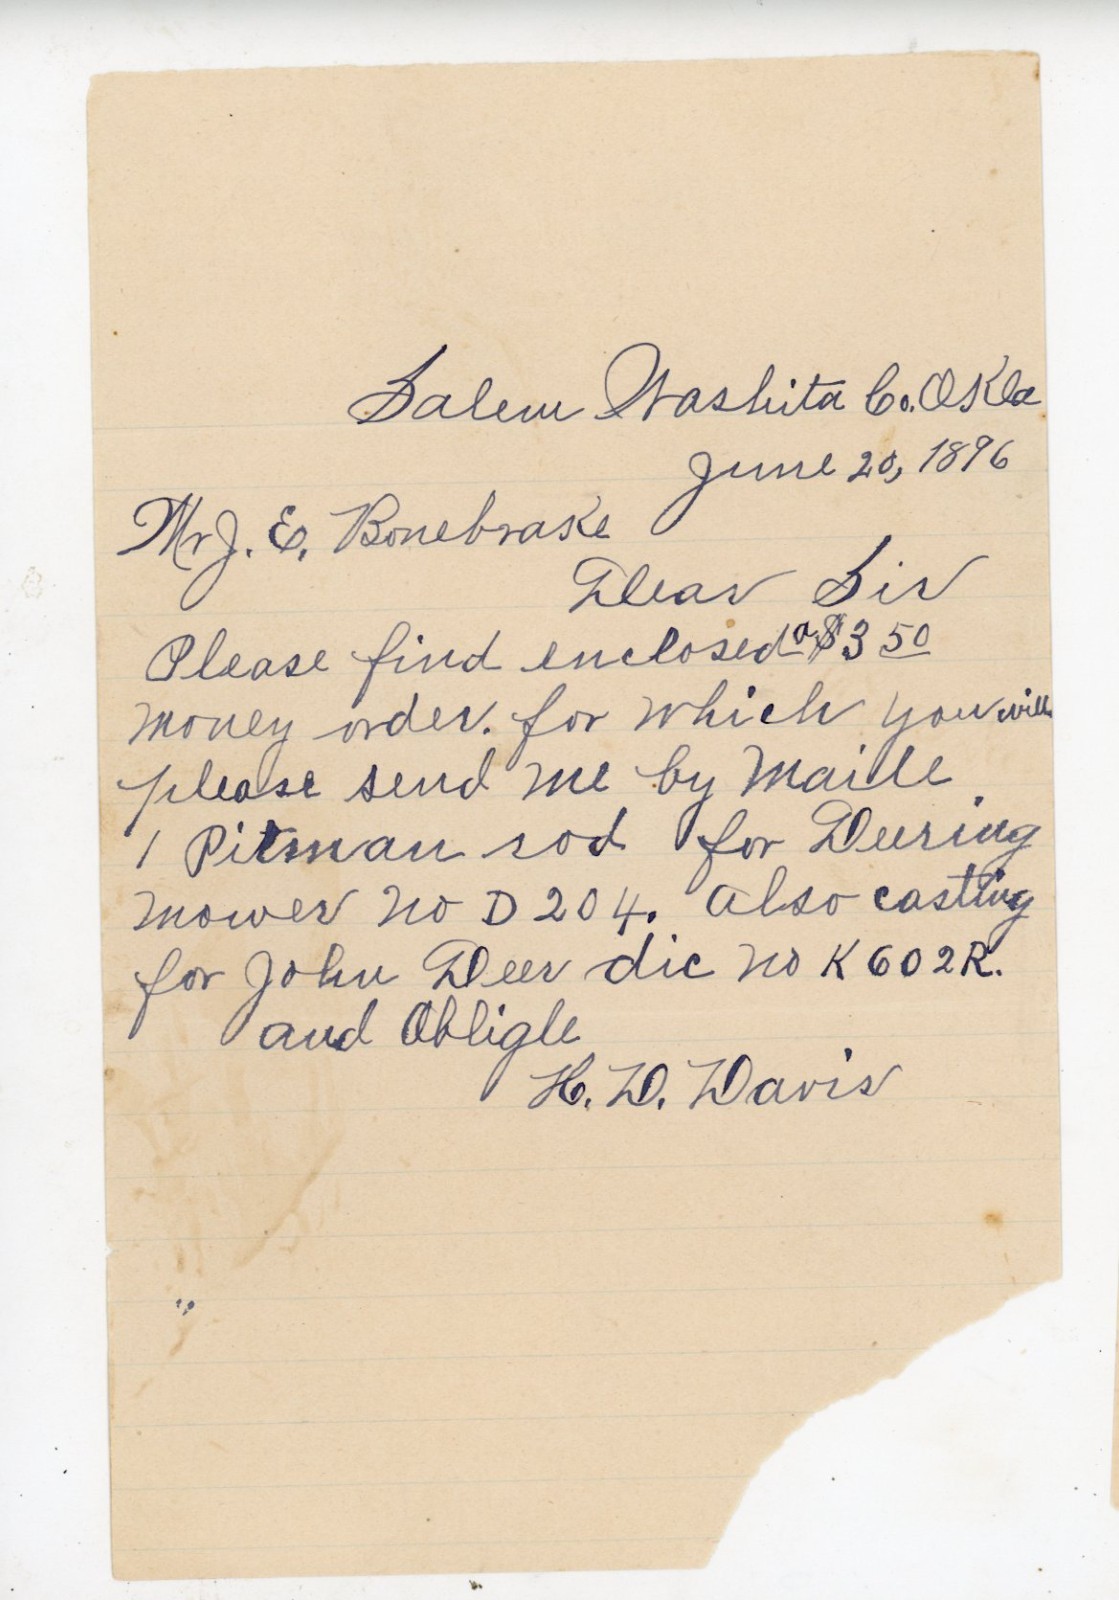 Salem Washita Co. Okla
June 20, 1896
Mr J. E. Bonebrake
Dear Sir
Please find enclosed a $3 50
money order. for which you will
please send me by Maile
1 Pitman rod for Deering
mower no D 204. also casting
for John Deer dic no K602R.
and Obligle
H. D. Davis